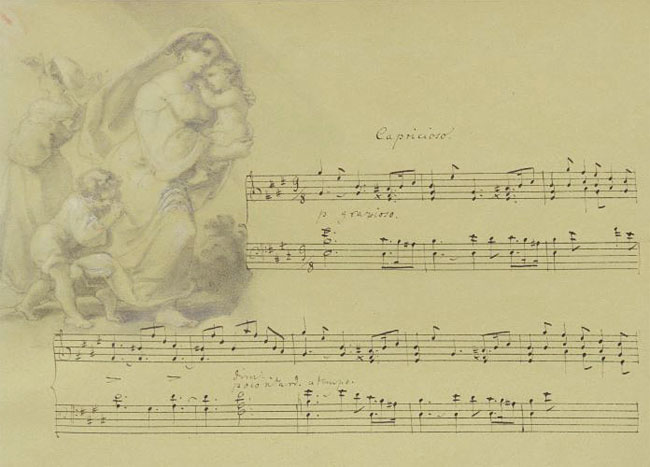 Capricioso.
9
8
p grazioso.
9
8
dim.
poco ritard. a tempo.